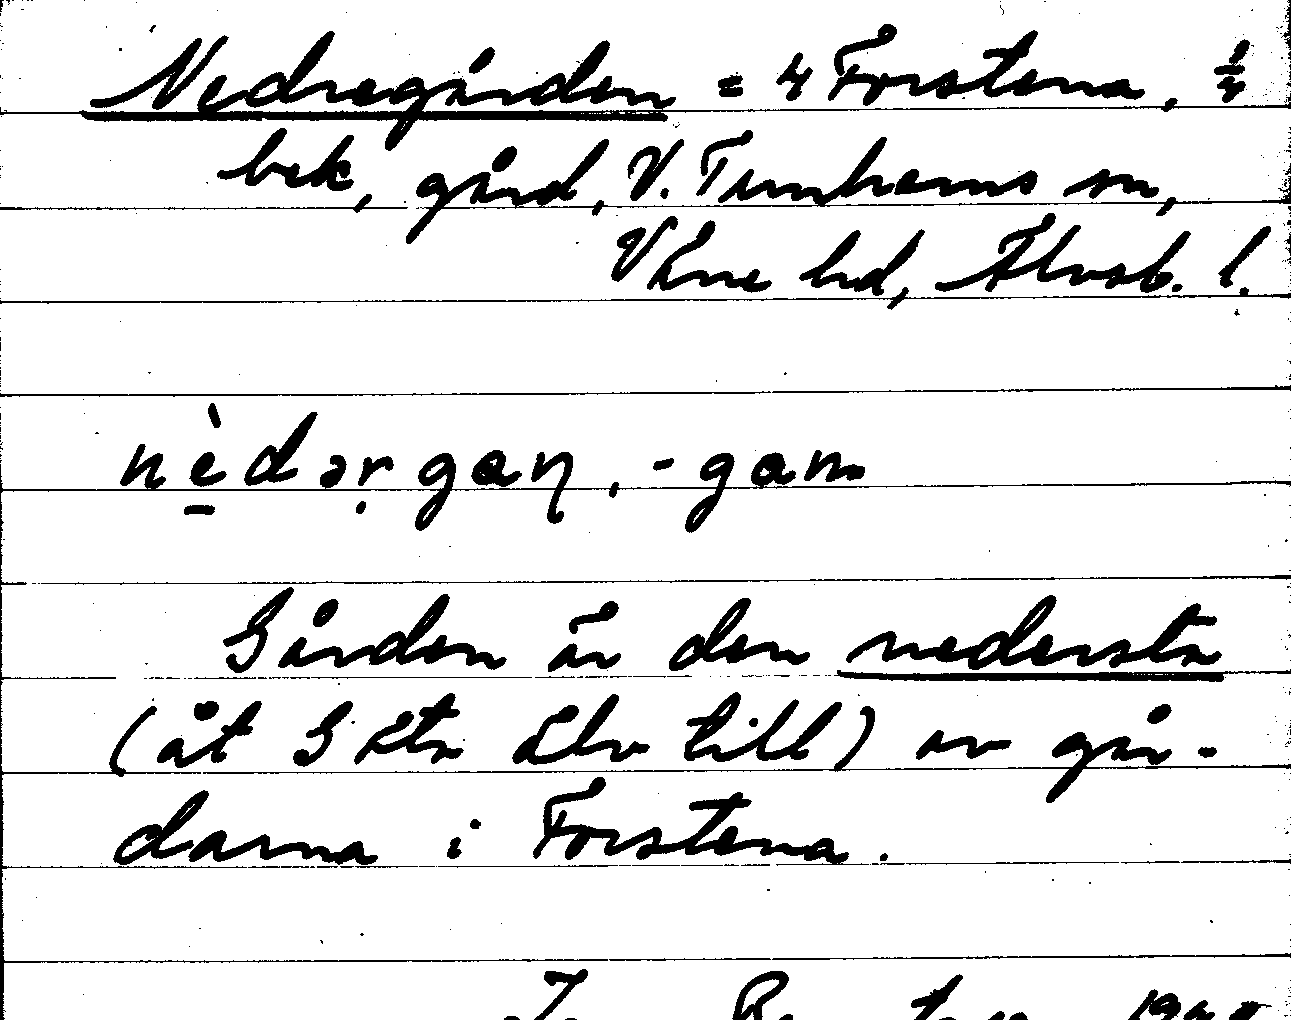 Nedregården = 4 Forstena, 1/4
bek, gård, V. Tunhems sn,
Väne hd, Älvsb. l.
nèdərgan, -gam
Gården är den nedersta
(åt Göta älv till) av går-
darna i Forstena.